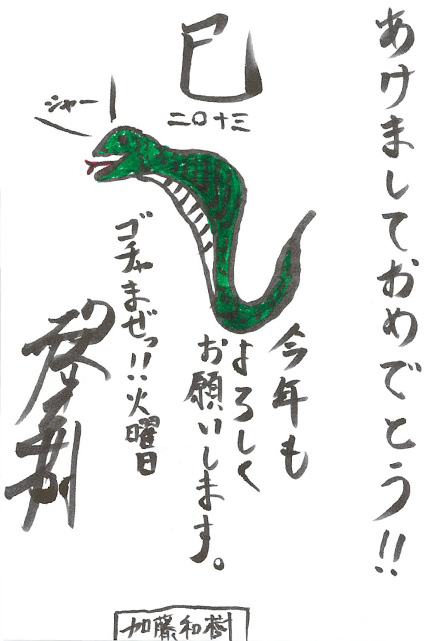 あけましておめでとう!!
巳
二〇十三
シャー
今年も
よろしく
お願いします。
ゴチャまぜっ!!火曜日
加藤和樹